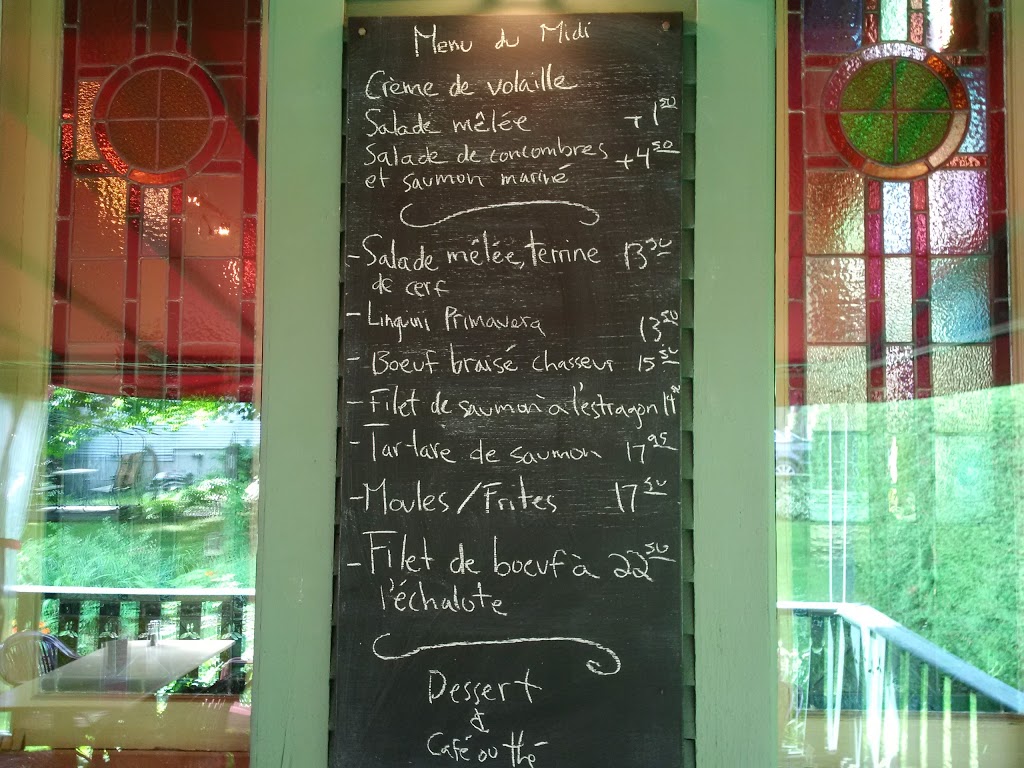 Menu du Midi
Crème de volaille
Salade mêlée +1 50
Salade de concombres +4 50
et saumon mariné
- Salade mêlée, terrine 13 50
de cerf
- Linguini Primavera 13 50
- Boeuf braisé chasseur 15 50
- Filet de saumon à l'estragon
- Tartare de saumon 17 95
- Moules/Frites 17 50
- Filet de boeuf à 22 50
l'échalote
Dessert
&
Café ou thé